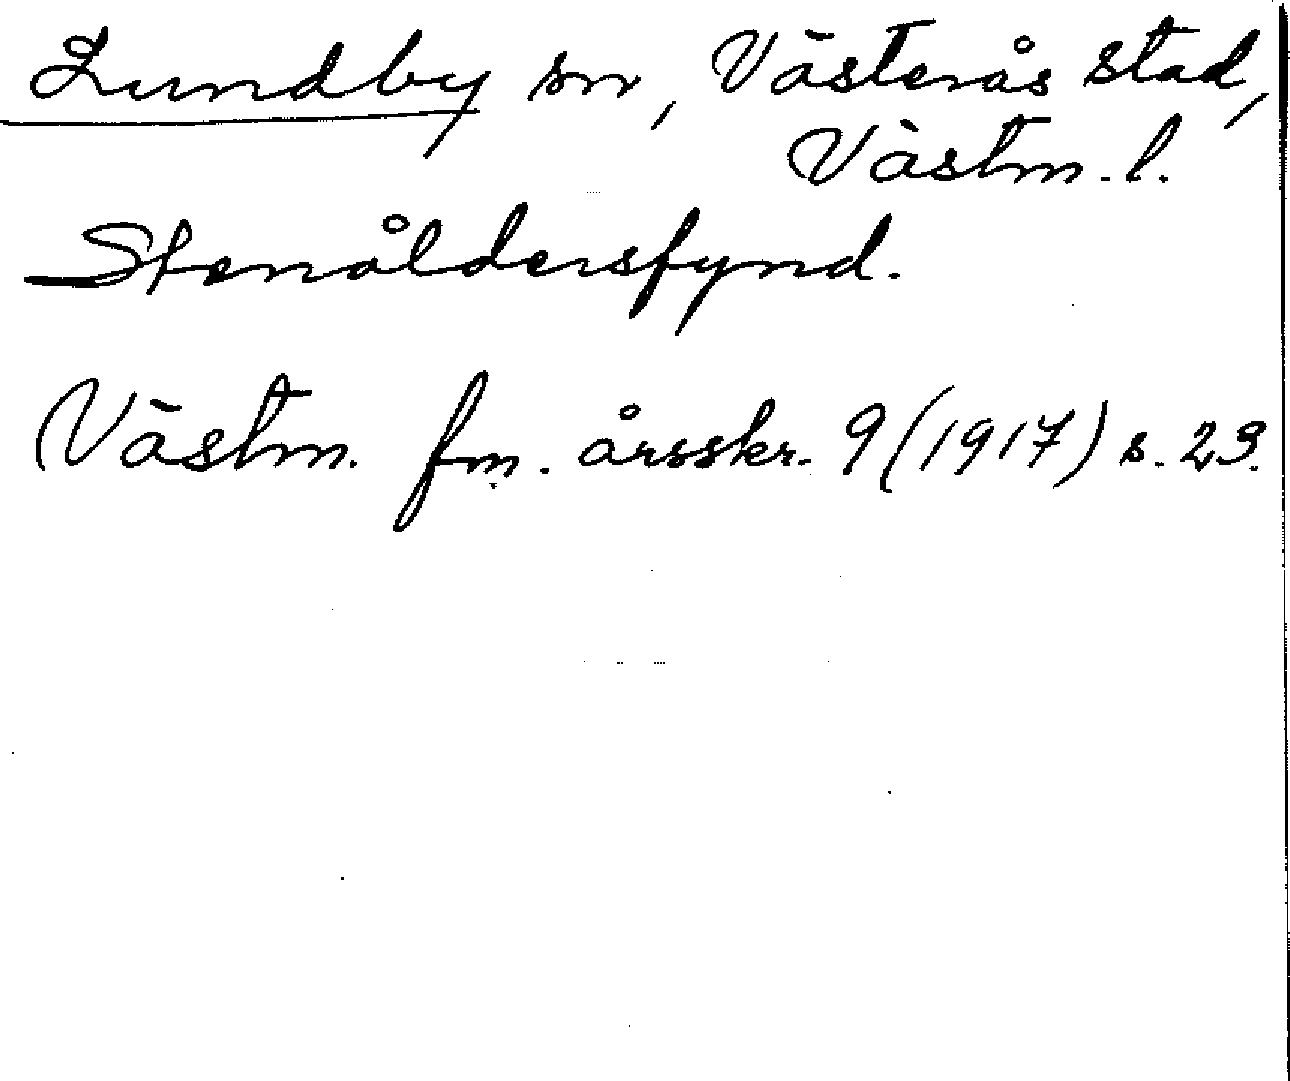 Lundby sn, Västerås stad,
Västm. l.
Stenåldersfynd.
Västm. fm. årsskr. 9 (1917) s. 23.